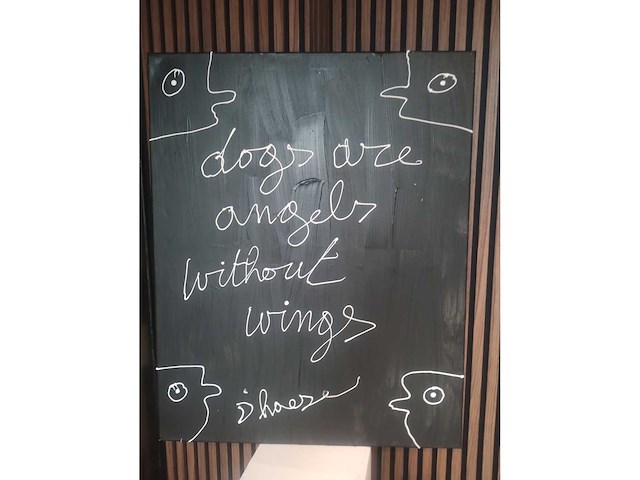 dogs are
angels
without
wings
d'haese